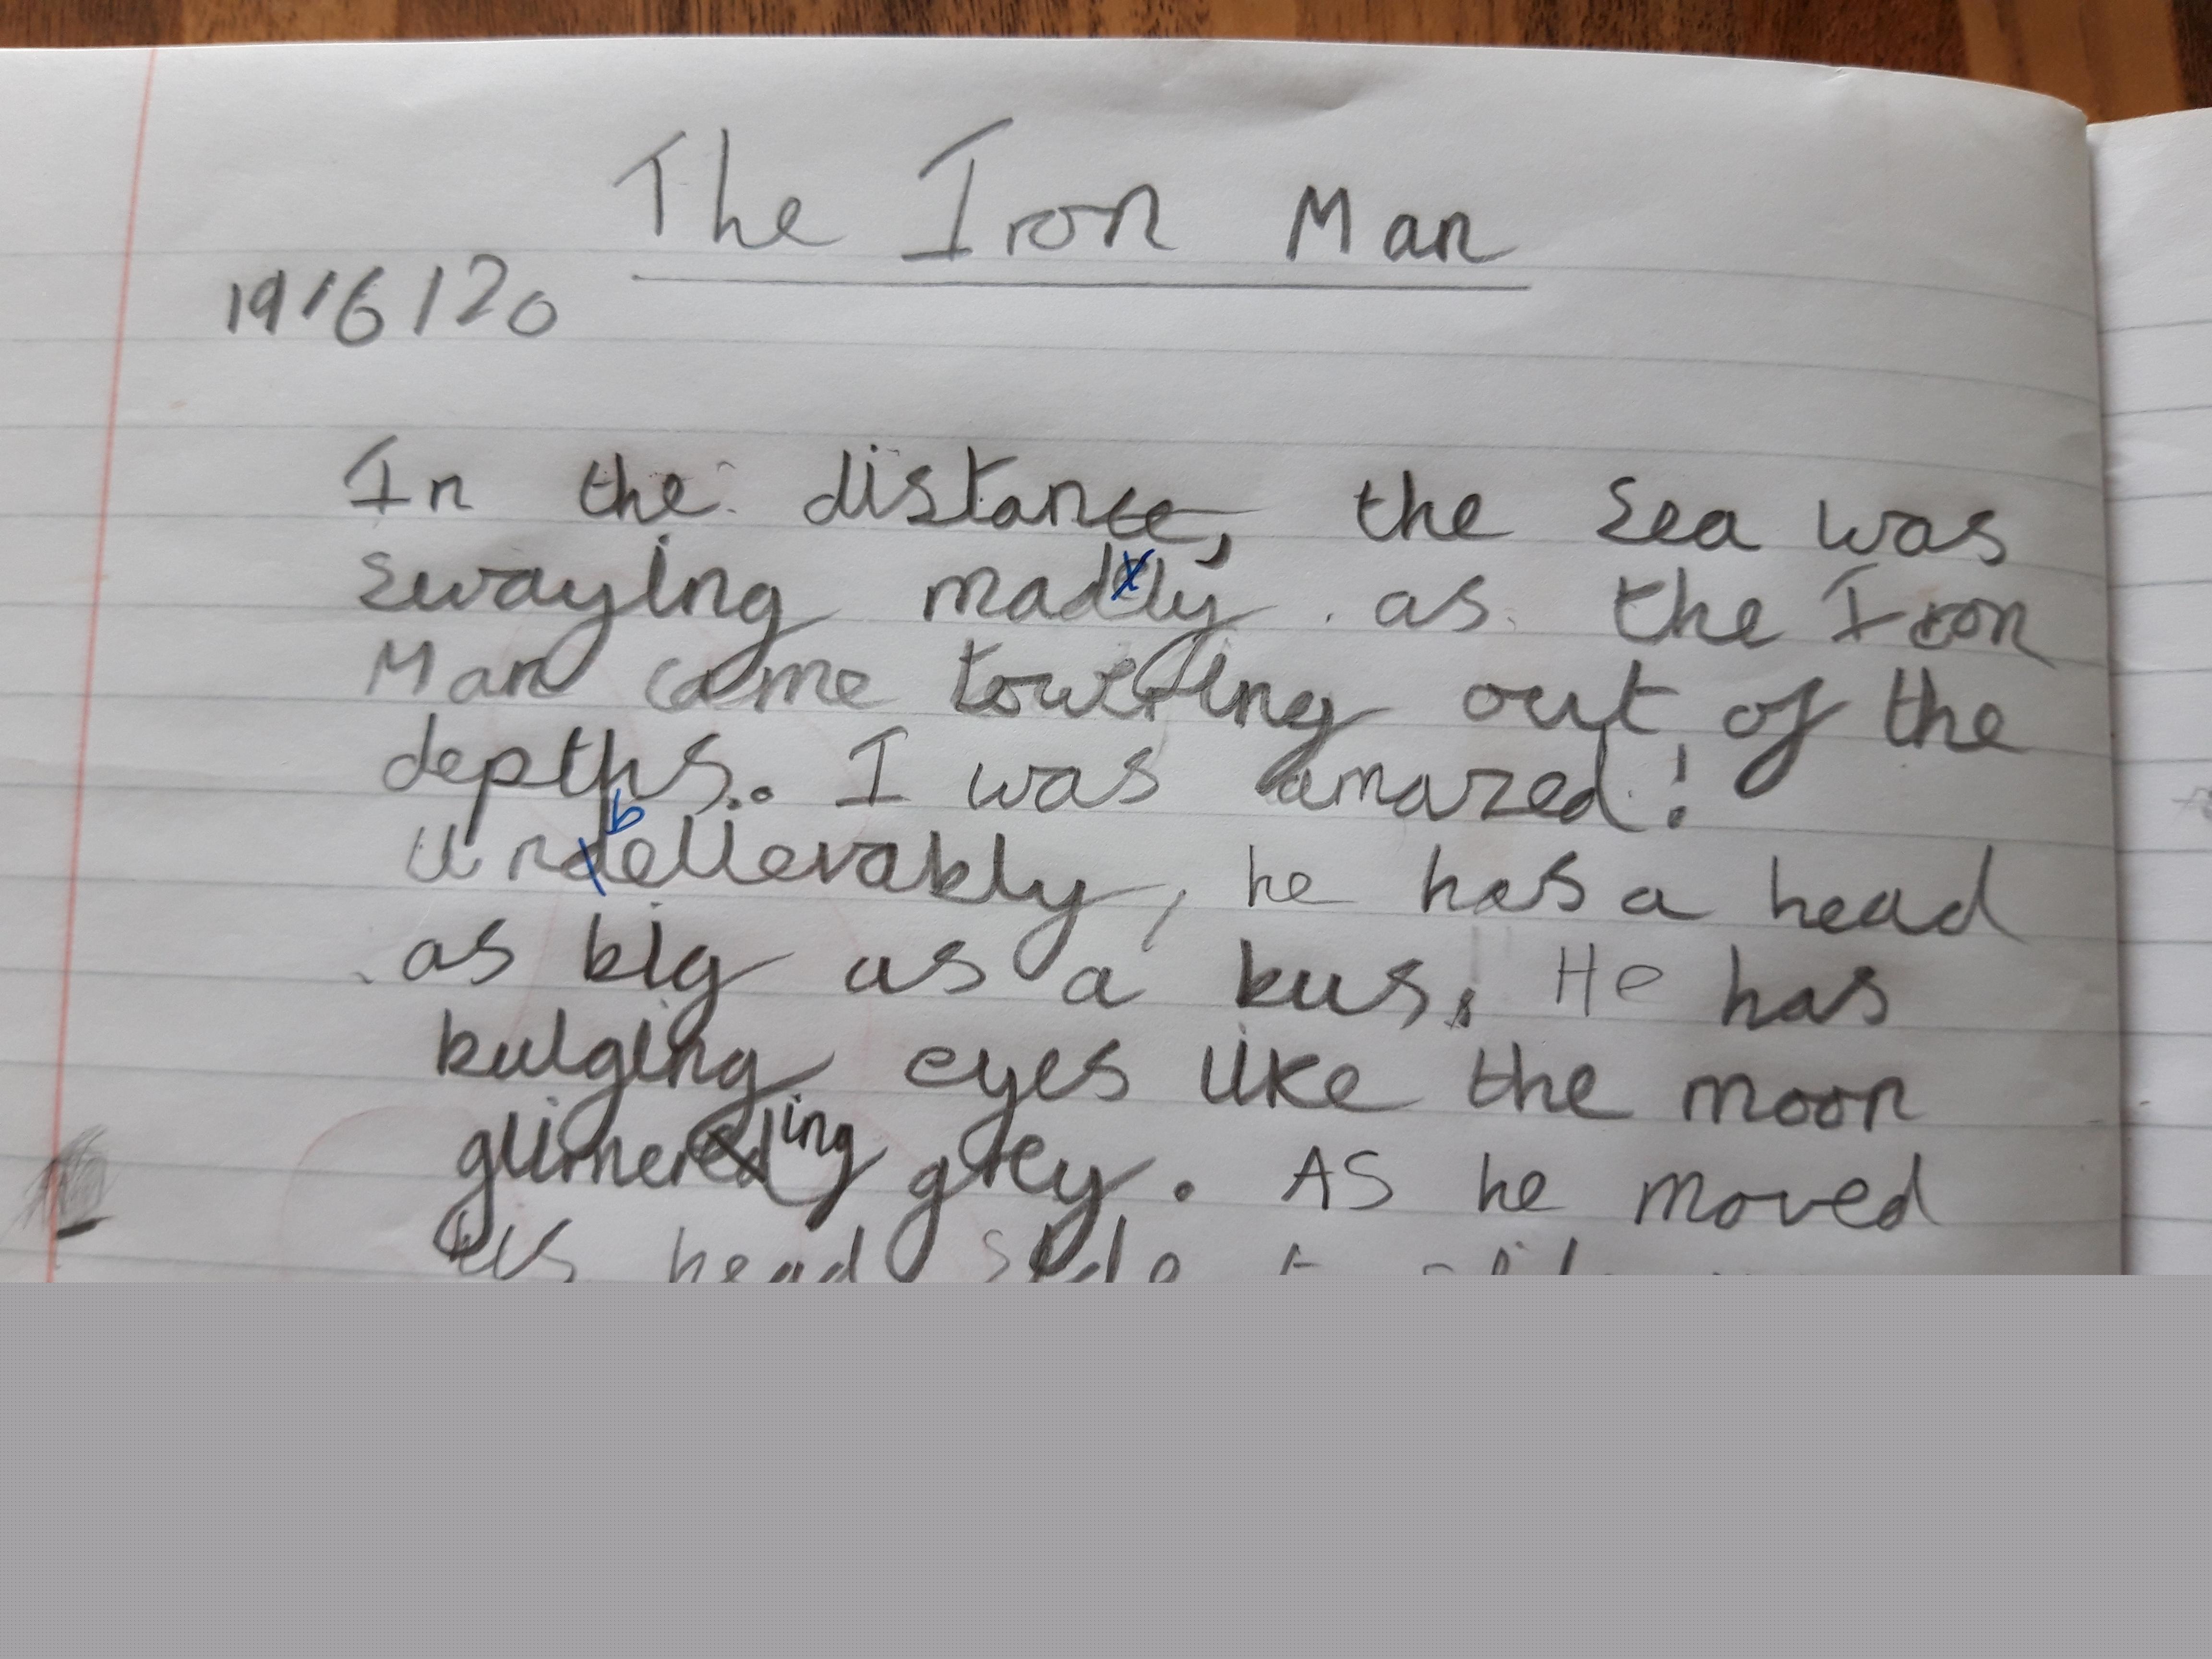 The Iron Man
19/6/20
In the distance, the sea was
swaying madly as the Iron
Man came towering out of the
depths.. I was amazed!
Unbelievably, he has a head
as big as a bus. He has
bulging eyes like the moon
glimering grey. As he moved
his head side to side